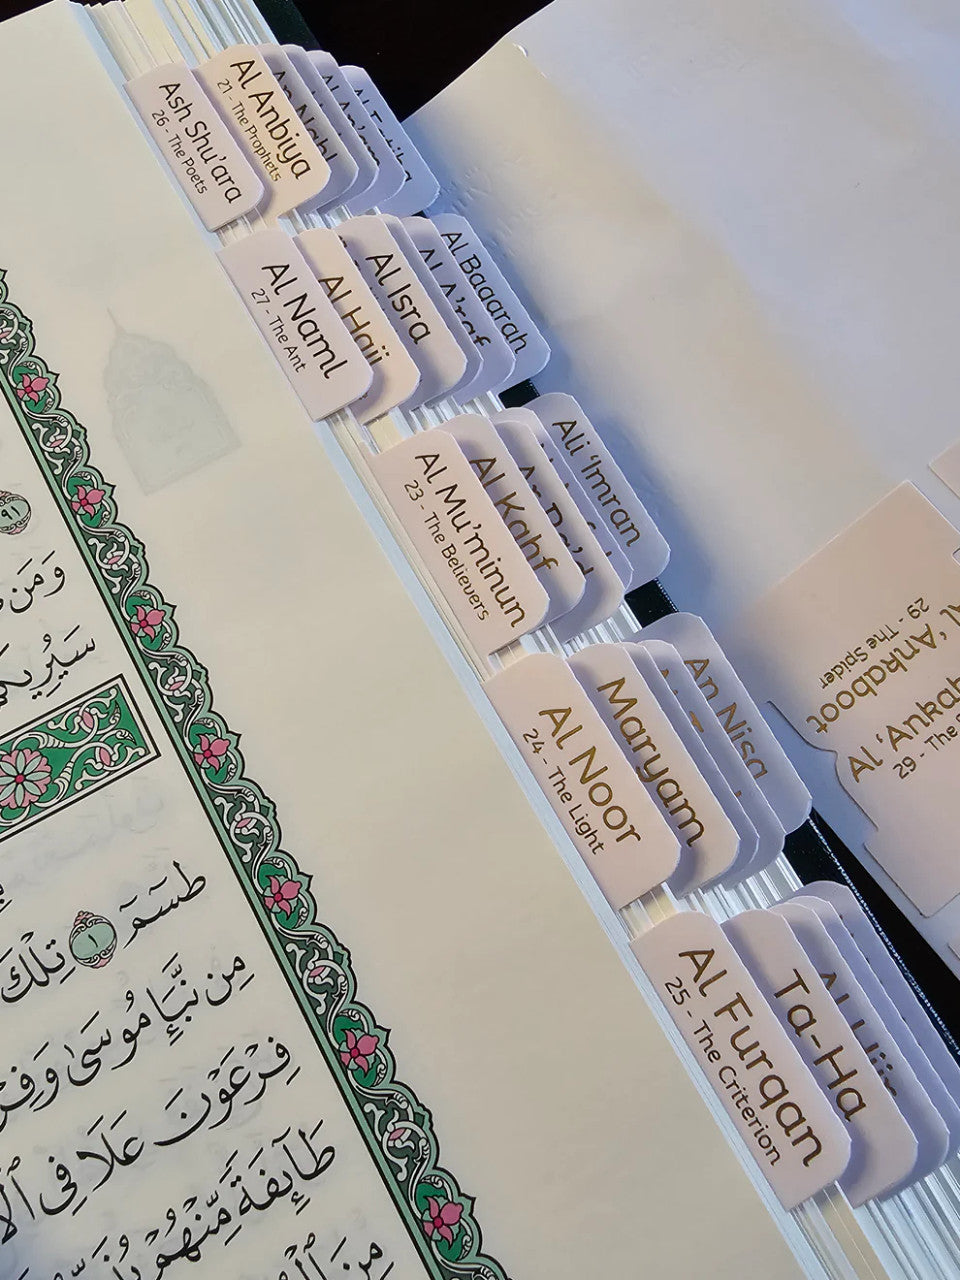 Ash Shu'ara
26 - The Poets
Al Anbiya
21 - The Prophets
An Nahl
Al An'am
Al Naml
27 - The Ant
Al Hajj
Al Isra
Al A'raf
Al Baqarah
Al Mu'minun
23 - The Believers
Al Kahf
Ar Ra'd
Ali 'Imran
Al Noor
24 - The Light
Maryam
An Nisa
Al Furqan
25 - The Criterion
Ta-Ha
Al Hijr
29 - The Spider
Al 'Ankaboot
Al 'Ankab
29 - The S
٩١
وَمَن
سَيُرِيكُ
طسٓمٓ ١ تِلْكَ
مِن نَّبَإِ مُوسَىٰ وَفِرْ
فِرْعَوْنَ عَلَا فِي ٱلْأَ
طَآئِفَةً مِّنْهُمْ يُذَبِّ
مِنَ ٱلْ